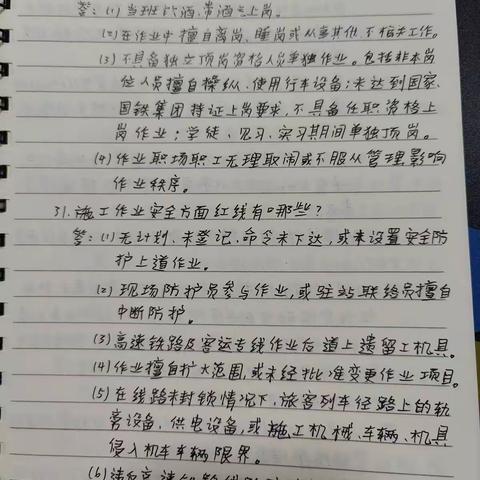 答：(1)当班饮酒、带酒上岗。
(2)在作业中擅自离岗、睡岗或从事其他不相关工作。
(3)不具备独立顶岗资格人员单独作业。包括非本岗
位人员擅自操纵、使用行车设备；未达到国家、
国铁集团持证上岗要求，不具备任职资格上
岗作业；学徒、见习、实习期间单独顶岗。
(4)作业职场职工无理取闹或不服从管理影响
作业秩序。
31.施工作业安全方面红线有哪些？
答：(1)无计划、未登记、命令未下达，或未设置安全防
护上道作业。
(2)现场防护员参与作业，或驻站联络员擅自
中断防护。
(3)高速铁路及客运专线作业后道上遗留工机具。
(4)作业擅自扩大范围，或未经批准变更作业项目。
(5)在线路未封锁情况下，旅客列车径路上的轨
旁设备、供电设备，或施工机械、车辆、机具
侵入机车车辆限界。
(6)违反高速铁路线路